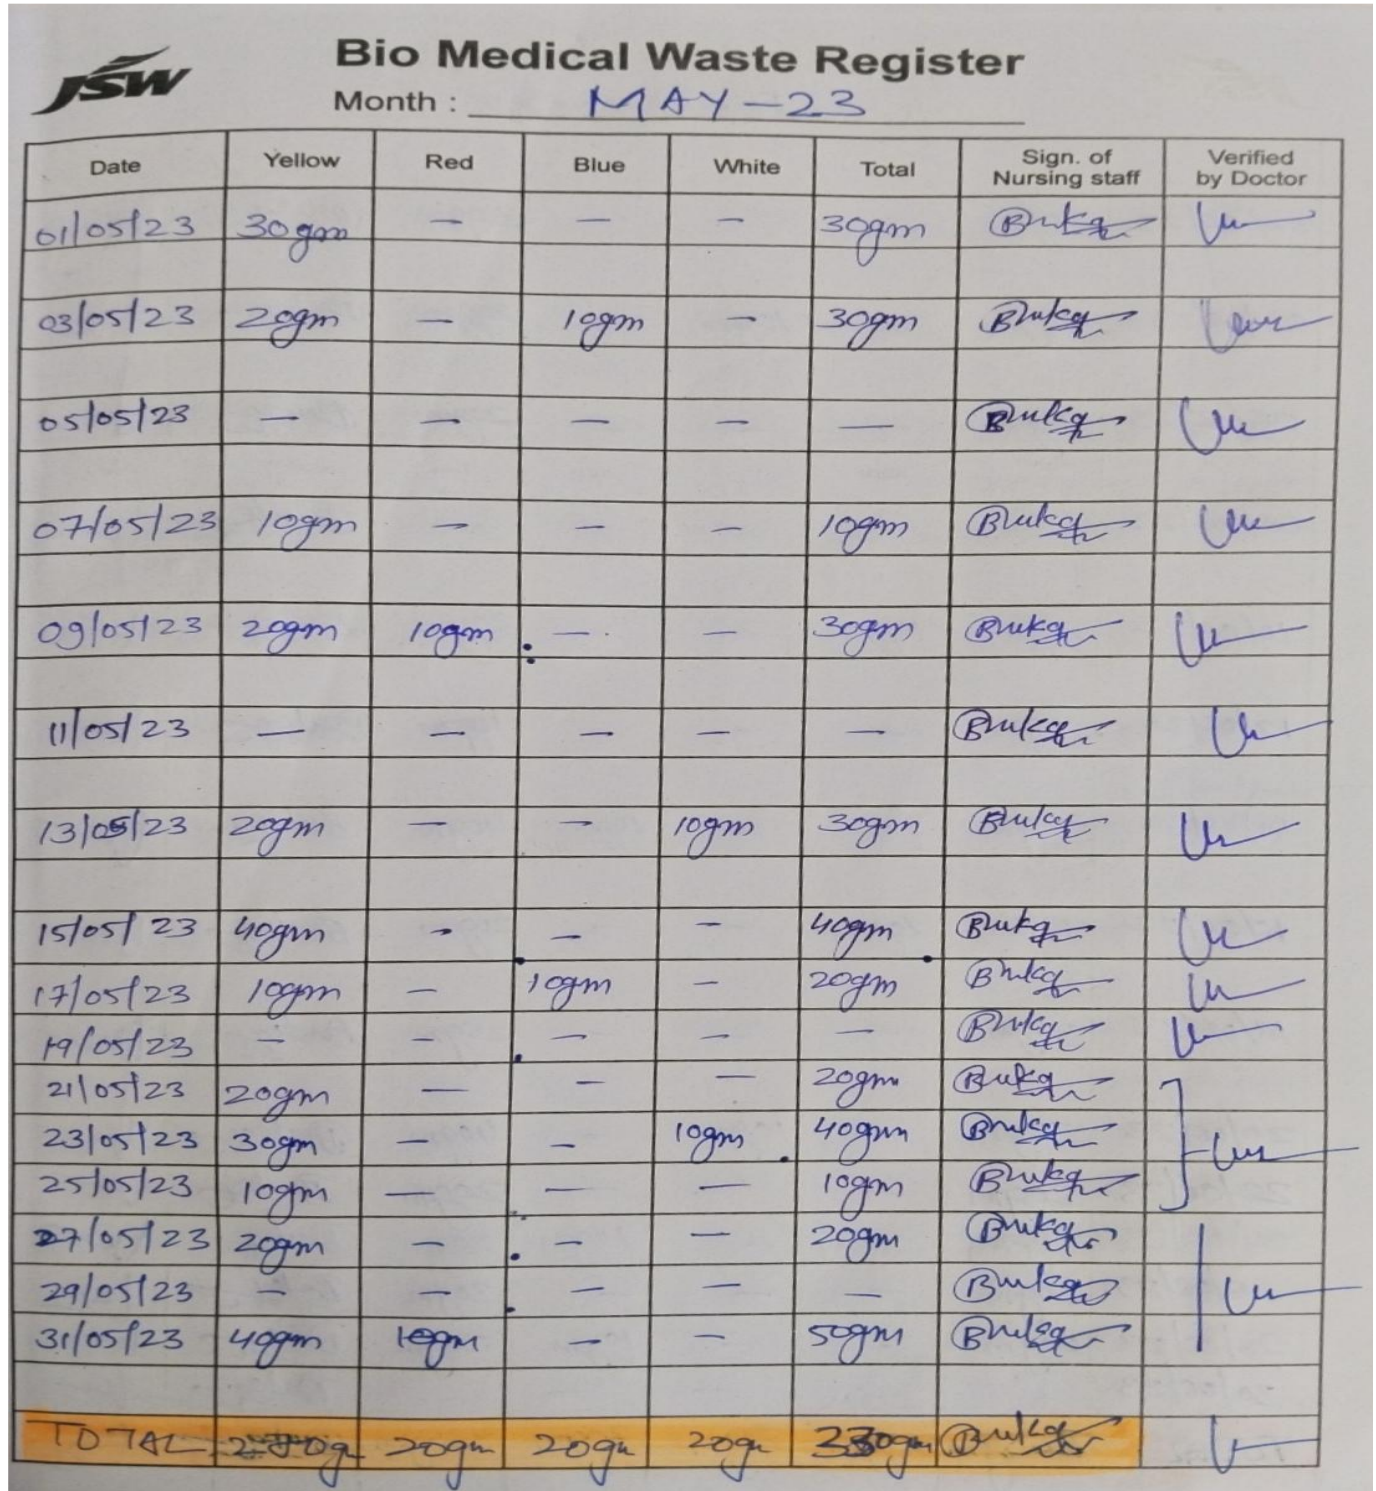 JSW
Bio Medical Waste Register
Month : MAY-23
Date Yellow Red Blue White Total Sign. of Nursing staff Verified by Doctor
01/05/23 30gm — — — 30gm
03/05/23 20gm — 10gm — 30gm
05/05/23 — — — — —
07/05/23 10gm — — — 10gm
09/05/23 20gm 10gm — — 30gm
11/05/23 — — — — —
13/05/23 20gm — — 10gm 30gm
15/05/23 40gm - — - 40gm
17/05/23 10gm — 10gm — 20gm
19/05/23 — — — — —
21/05/23 20gm — — — 20gm
23/05/23 30gm — — 10gm 40gm
25/05/23 10gm — — — 10gm
27/05/23 20gm — — — 20gm
29/05/23 — — — — —
31/05/23 40gm 10gm — — 50gm
TOTAL 20gm 20gm 20gm 330gm